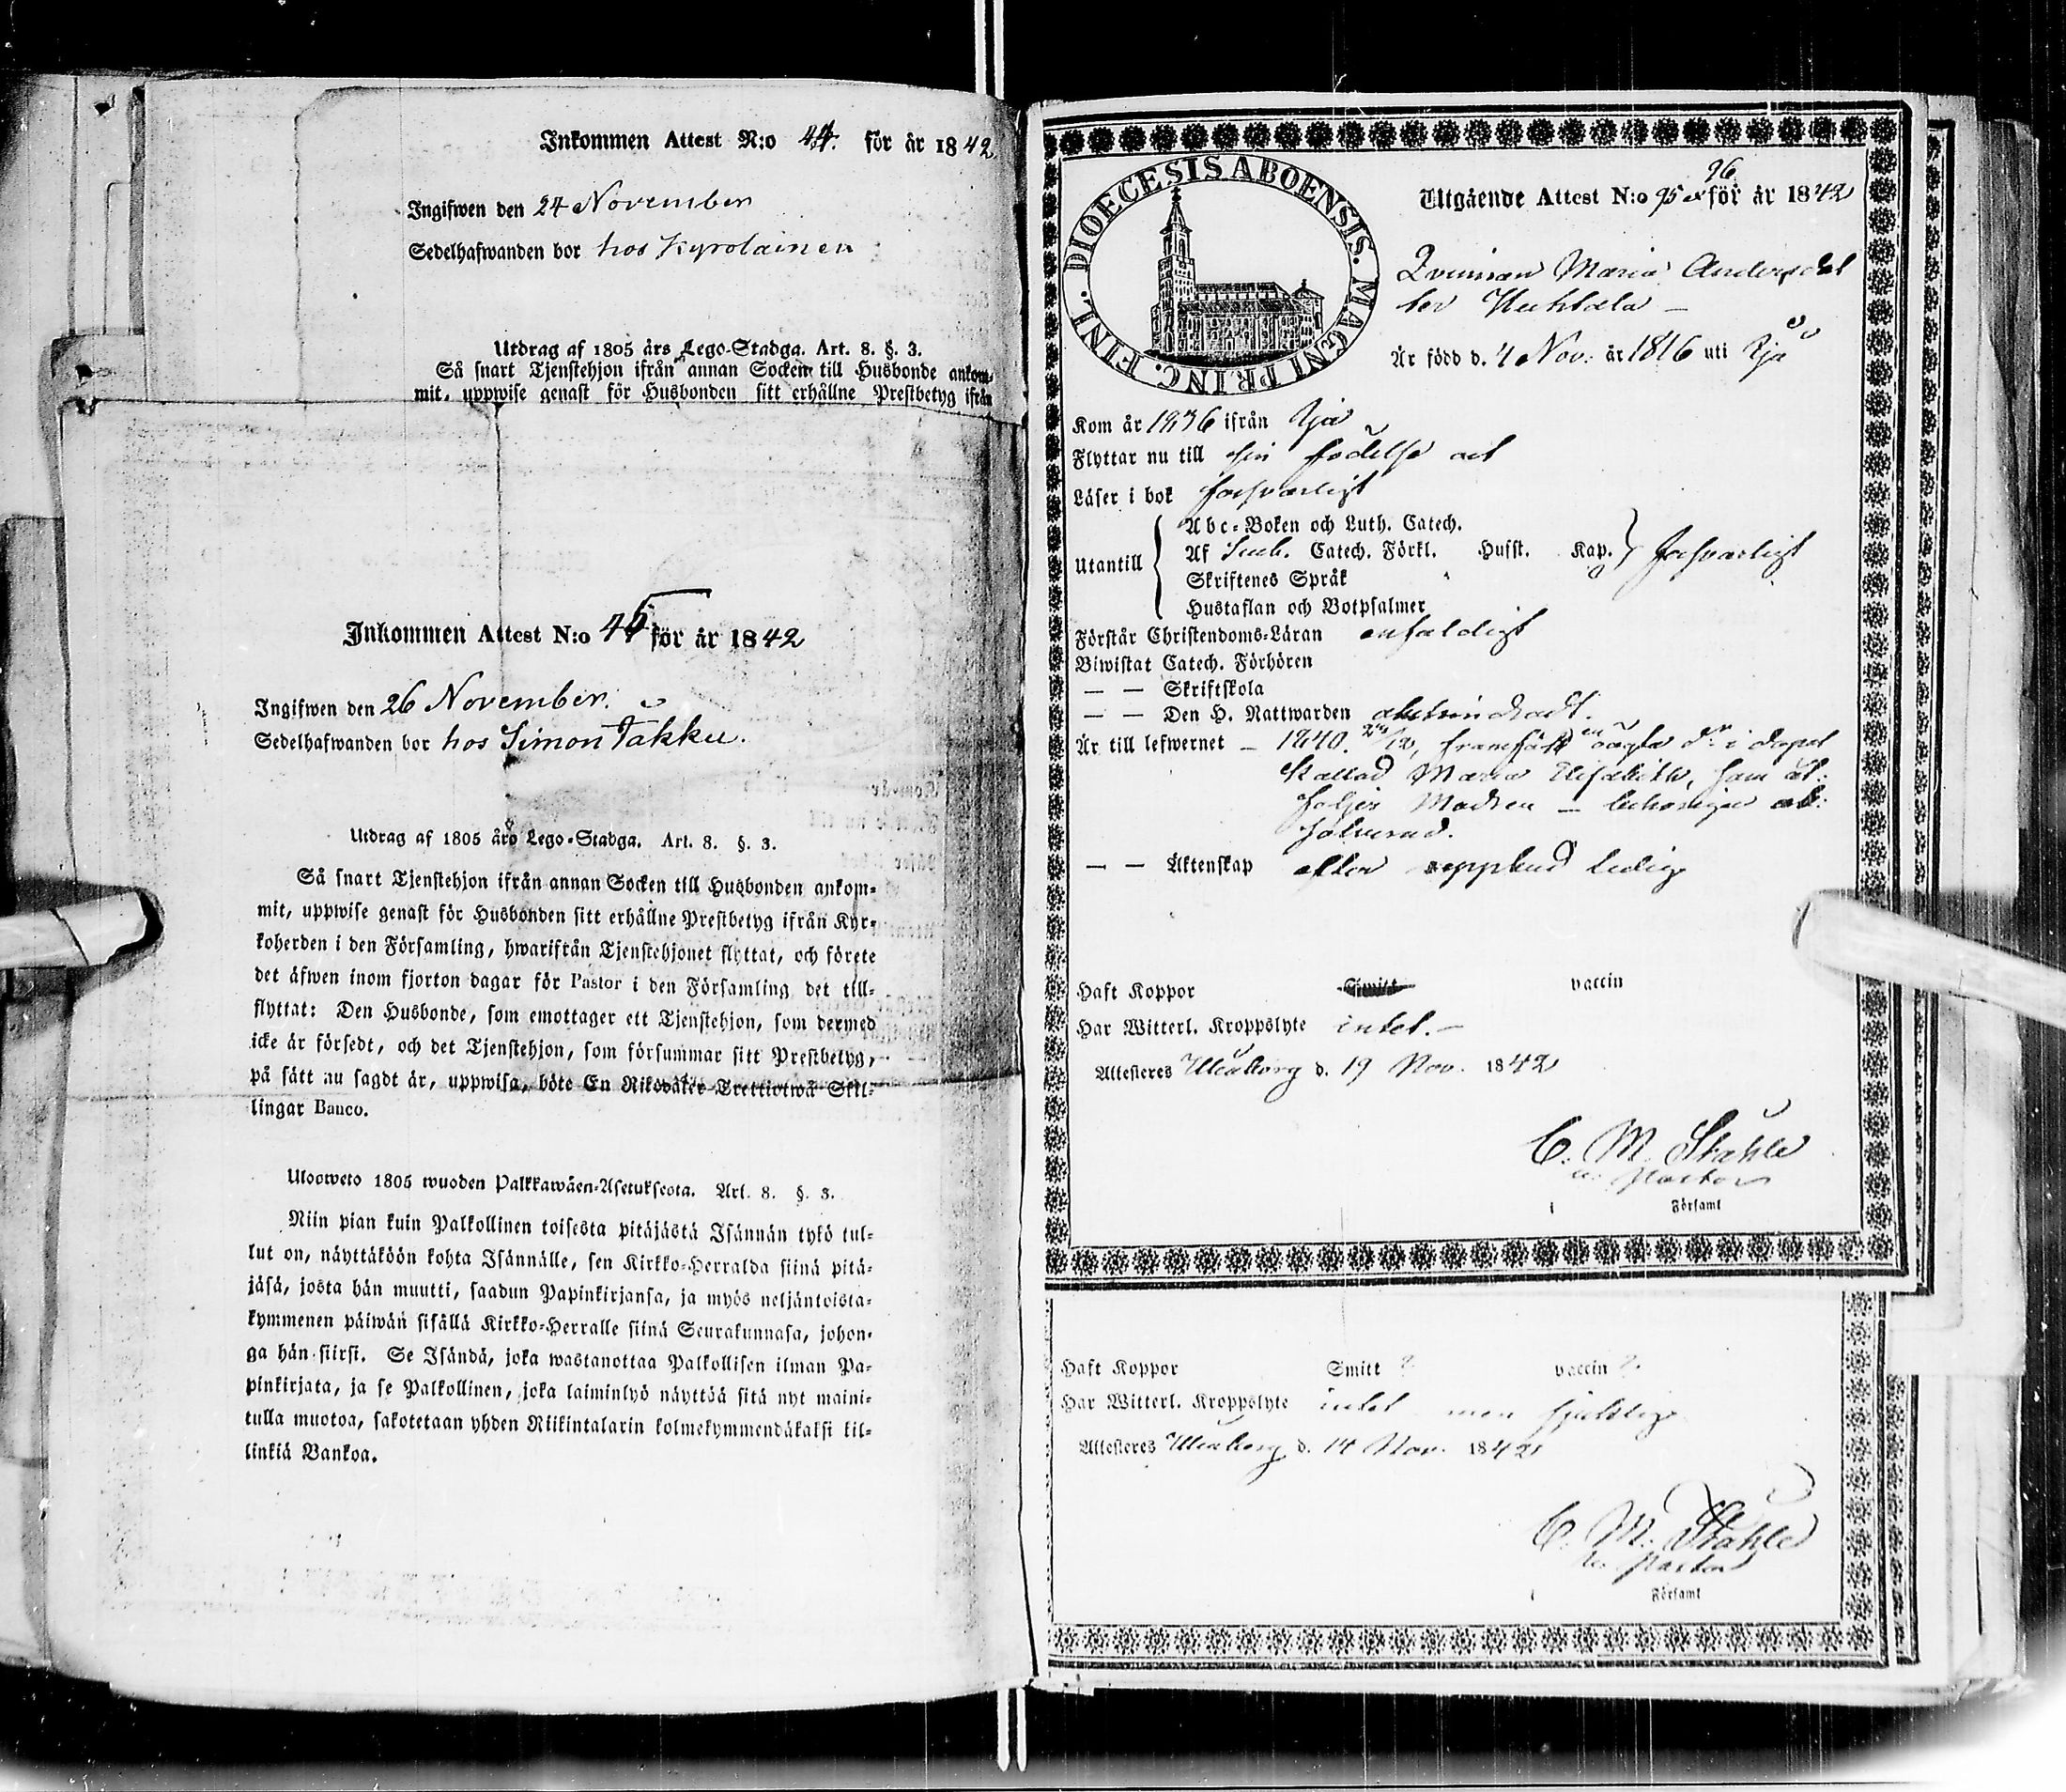 Inkommen Attest N:o 44. för år 1842
Ingifwen den 24 November
Sedelhafwanden bor hos Kyrolainen
Utdrag af 1805 års Lego-Stadga. Art. 8. §. 3.
Så snart Tjenstehjon ifrån annan Socken till Husbonde ankom-
mit, uppwise genast för Husbonden sitt erhållne Prestbetyg ifrån
Inkommen Attest N:o 45 för år 1842
Ingifwen den 26 November.
Sedelhafwanden bor hos Simon Takku.
Utdrag af 1805 års Lego-Stadga. Art. 8. §. 3.
Så snart Tjenstehjon ifrån annan Socken till Husbonden ankom-
mit, uppwise genast för Husbonden sitt erhållne Prestbetyg ifrån Kyr-
koherden i den Församling, hwarifrån Tjenstehjonet flyttat, och förete
det äfwen inom fjorton dagar för Pastor i den Församling det till-
flyttat: Den Husbonde, som emottager ett Tjenstehjon, som dermed
icke är försedt, och det Tjenstehjon, som försummar sitt Prestbetyg,
på sätt nu sagdt är, uppwisa, böte En Riksdaler Trettiotwå Skil-
lingar Banco.
Ulosweto 1805 wuoden Palkkawäen-Asetuksesta. Art. 8. §. 3.
Niin pian kuin Palkollinen toisesta pitäjästä Isännän tykö tul-
lut on, näyttäköön kohta Isännälle, sen Kirkko-Herralda siinä pitä-
jäsä, josta hän muutti, saadun Papinkirjansa, ja myös neljäntoista-
kymmenen päiwän sisällä Kirkko-Herralle siinä Seurakunnasa, johon-
ga hän siirsi. Se Isändä, joka wastanottaa Palkollisen ilman Pa-
pinkirjata, ja se Palkollinen, joka laiminlyö näyttää sitä nyt maini-
tulla muotoa, sakotetaan yhden Riikintalarin kolmekymmendäkaksi kil-
linkiä Bankoa.
DIOECESIS ABOENSIS. MAGNI PRINC. FINL.
96
Utgående Attest N:o 95 för år 1842
Qvinnan Maria Andersdot
ter Huhtala
Är född d. 4 Nov. år 1816 uti Ijo
Kom år 1836 ifrån Ijo
Flyttar nu till sin födelse ort
Läser i bok försvarligt
Utantill
Abc-Boken och Luth. Catech.
Af Catech. Förkl. Husst. Kap. försvarligt
Skriftenes Språk
Hustaflan och Botpsalmer
Förstår Christendoms-Läran enfaldigt
Biwistat Catech. Förhören
— — Skriftskola
— — Den H. Nattwarden obehindradt.
Är till lefwernet — 1840. framfödt en oägta dr i dopet
kallad Maria Elisabeth, som åt-
följer Modren — behörigen ab-
solverad.
— — Äktenskap efter uppbud ledig
Haft Koppor Smitt vaccin
Har Witterl. Kroppslyte intet. —
Attesteres Uleåborg d. 19 Nov. 1842
C. M. Ståhle
v. Pastor
i Församl
Haft Koppor Smitt ? vaccin ?
Har Witterl. Kroppslyte intet men sjuklig
Attesteres Uleåborg d. 14 Nov. 1842
C. M. Ståhle
v. Pastor
i Församl